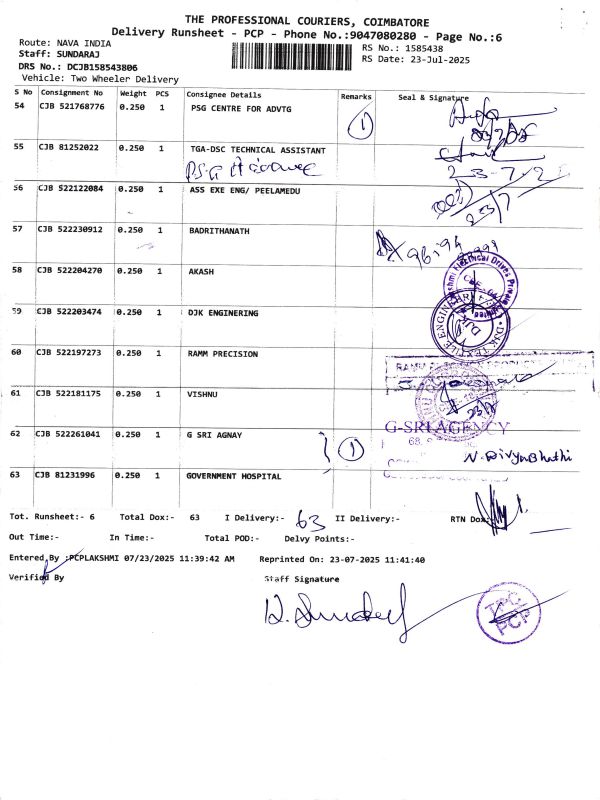 THE PROFESSIONAL COURIERS, COIMBATORE
Delivery Runsheet - PCP - Phone No.:9047080280 - Page No.:6
Route: NAVA INDIA
RS No.: 1585438
Staff: SUNDARAJ
RS Date: 23-Jul-2025
DRS No.: DCJB158543806
Vehicle: Two Wheeler Delivery
S No Consignment No Weight PCS Consignee Details Remarks Seal & Signature
54 CJB 521768776 0.250 1 PSG CENTRE FOR ADVTG
1
55 CJB 81252022 0.250 1 TGA-DSC TECHNICAL ASSISTANT
23-7-25
56 CJB 522122084 0.250 1 ASS EXE ENG/ PEELAMEDU
23/7
57 CJB 522230912 0.250 1 BADRITHANATH
58 CJB 522204270 0.250 1 AKASH
59 CJB 522203474 0.250 1 DJK ENGINERING
60 CJB 522197273 0.250 1 RAMM PRECISION
61 CJB 522181175 0.250 1 VISHNU
G-SRI AGENCY
62 CJB 522261041 0.250 1 G SRI AGNAY
1
N. DivyaBhathi
63 CJB 81231996 0.250 1 GOVERNMENT HOSPITAL
Tot. Runsheet:- 6 Total Dox:- 63 I Delivery:- 63 II Delivery:- RTN Dox:-
Out Time:- In Time:- Total POD:- Delvy Points:-
Entered By :PCPLAKSHMI 07/23/2025 11:39:42 AM Reprinted On: 23-07-2025 11:41:40
Verified By Staff Signature
TPC
PCP